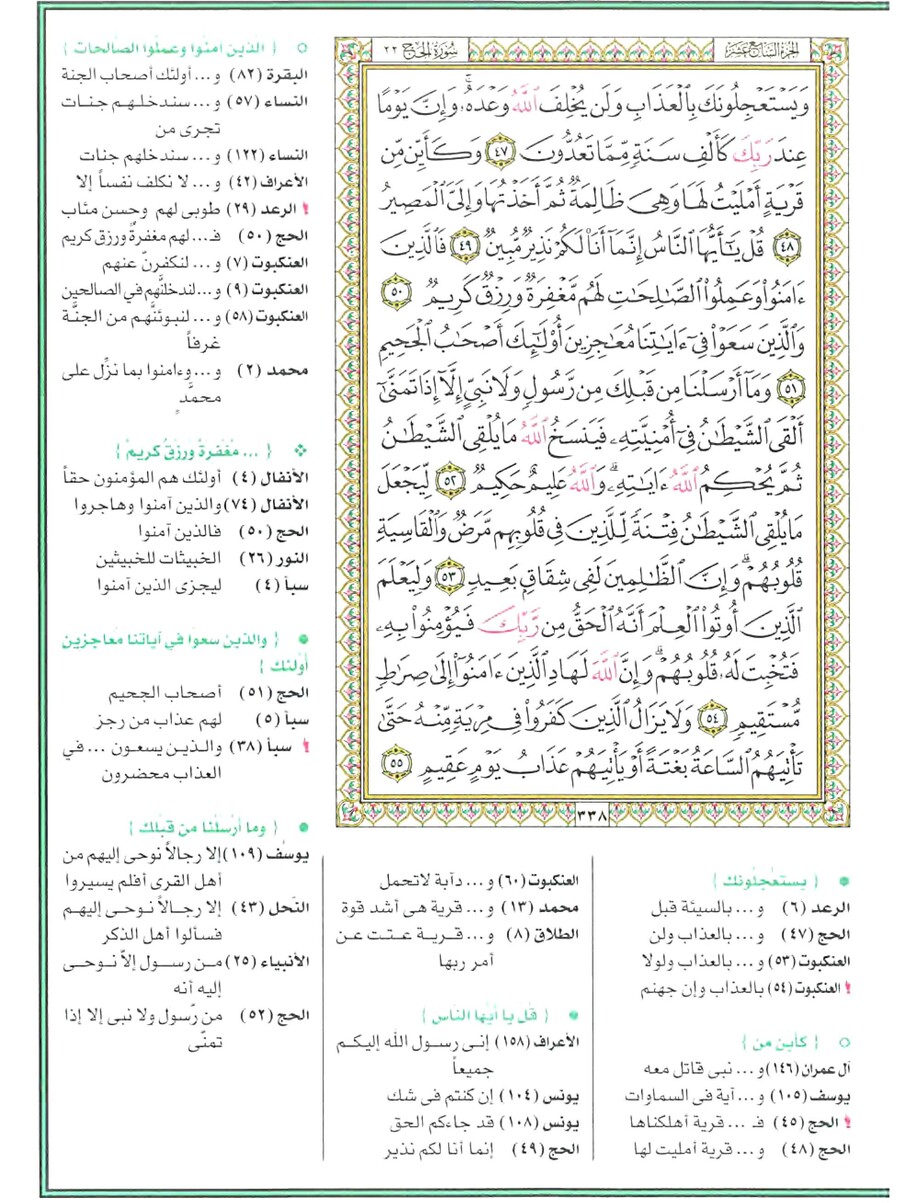 الجزء السابع عشر
سورة الحج ٢٢
وَيَسْتَعْجِلُونَكَ بِٱلْعَذَابِ وَلَن يُخْلِفَ ٱللَّهُ وَعْدَهُۥ ۚ وَإِنَّ يَوْمًا
عِندَ رَبِّكَ كَأَلْفِ سَنَةٍ مِّمَّا تَعُدُّونَ ٤٧ وَكَأَيِّن مِّن
قَرْيَةٍ أَمْلَيْتُ لَهَا وَهِىَ ظَالِمَةٌ ثُمَّ أَخَذْتُهَا وَإِلَىَّ ٱلْمَصِيرُ
٤٨ قُلْ يَٰٓأَيُّهَا ٱلنَّاسُ إِنَّمَآ أَنَا۠ لَكُمْ نَذِيرٌ مُّبِينٌ ٤٩ فَٱلَّذِينَ
ءَامَنُوا۟ وَعَمِلُوا۟ ٱلصَّٰلِحَٰتِ لَهُم مَّغْفِرَةٌ وَرِزْقٌ كَرِيمٌ ٥٠
وَٱلَّذِينَ سَعَوْا۟ فِىٓ ءَايَٰتِنَا مُعَٰجِزِينَ أُو۟لَٰٓئِكَ أَصْحَٰبُ ٱلْجَحِيمِ
٥١ وَمَآ أَرْسَلْنَا مِن قَبْلِكَ مِن رَّسُولٍ وَلَا نَبِىٍّ إِلَّآ إِذَا تَمَنَّىٰٓ
أَلْقَى ٱلشَّيْطَٰنُ فِىٓ أُمْنِيَّتِهِۦ فَيَنسَخُ ٱللَّهُ مَا يُلْقِى ٱلشَّيْطَٰنُ
ثُمَّ يُحْكِمُ ٱللَّهُ ءَايَٰتِهِۦ ۗ وَٱللَّهُ عَلِيمٌ حَكِيمٌ ٥٢ لِّيَجْعَلَ
مَا يُلْقِى ٱلشَّيْطَٰنُ فِتْنَةً لِّلَّذِينَ فِى قُلُوبِهِم مَّرَضٌ وَٱلْقَاسِيَةِ
قُلُوبُهُمْ ۗ وَإِنَّ ٱلظَّٰلِمِينَ لَفِى شِقَاقٍۭ بَعِيدٍ ٥٣ وَلِيَعْلَمَ
ٱلَّذِينَ أُوتُوا۟ ٱلْعِلْمَ أَنَّهُ ٱلْحَقُّ مِن رَّبِّكَ فَيُؤْمِنُوا۟ بِهِۦ
فَتُخْبِتَ لَهُۥ قُلُوبُهُمْ ۗ وَإِنَّ ٱللَّهَ لَهَادِ ٱلَّذِينَ ءَامَنُوٓا۟ إِلَىٰ صِرَٰطٍ
مُّسْتَقِيمٍ ٥٤ وَلَا يَزَالُ ٱلَّذِينَ كَفَرُوا۟ فِى مِرْيَةٍ مِّنْهُ حَتَّىٰ
تَأْتِيَهُمُ ٱلسَّاعَةُ بَغْتَةً أَوْ يَأْتِيَهُمْ عَذَابُ يَوْمٍ عَقِيمٍ ٥٥
٣٣٨
○ { الذين آمنوا وعملوا الصالحات }
البقرة (٨٢) و... أولئك أصحاب الجنة
النساء (٥٧) و... سندخلهم جنات
تجرى من
النساء (١٢٢) و... سندخلهم جنات
الأعراف (٤٢) و... لا نكلف نفساً إلا
! الرعد (٢٩) طوبى لهم وحسن مئاب
الحج (٥٠) فـ... لهم مغفرةٌ ورزق كريم
العنكبوت (٧) و... لنكفرنّ عنهم
العنكبوت (٩) و...لندخلنَّهم في الصالحين
العنكبوت (٥٨) و... لنبوئنَّهم من الجنَّة
غرفاً
محمد (٢) و...وءامنوا بما نزِّل على
محمدٍ
❖ { ... مغفرةٌ ورزقٌ كريمٌ }
الأنفال (٤) أولئك هم المؤمنون حقاً
الأنفال (٧٤) والذين آمنوا وهاجروا
الحج (٥٠) فالذين آمنوا
النور (٢٦) الخبيثات للخبيثين
سبأ (٤) ليجزى الذين آمنوا
● { والذين سعوا في آياتنا معاجزين
أولئك }
الحج (٥١) أصحاب الجحيم
سبأ (٥) لهم عذاب من رجز
! سبأ (٣٨) والذين يسعون ... في
العذاب محضرون
● { وما أرسلنا من قبلك }
يوسف (١٠٩) إلا رجالاً نوحى إليهم من
أهل القرى أفلم يسيروا
النحل (٤٣) إلا رجـالاً نـوحـى إليهـم
فسألوا أهل الذكر
الأنبياء (٢٥) مـن رسـول إلاّ نـوحـى
إليه أنه
الحج (٥٢) من رّسول ولا نبى إلا إذا
تمنّى
● { يستعجلونك }
الرعد (٦) و... بالسيئة قبل
الحج (٤٧) و... بالعذاب ولن
العنكبوت (٥٣) و... بالعذاب ولولا
! العنكبوت (٥٤) بالعذاب وإن جهنم
○ { كأين من }
آل عمران (١٤٦) و... نبى قاتل معه
يوسف (١٠٥) و... آية فى السماوات
! الحج (٤٥) فـ ... قرية أهلكناها
الحج (٤٨) و... قرية أمليت لها
العنكبوت (٦٠) و... دآبة لاتحمل
محمد (١٣) و... قرية هى أشد قوة
الطلاق (٨) و... قـريـة عـتـت عـن
أمر ربها
● { قل يا أيها الناس }
الأعراف (١٥٨) إنـى رسـول الله إليكـم
جميعاً
يونس (١٠٤) إن كنتم فى شك
يونس (١٠٨) قد جاءكم الحق
الحج (٤٩) إنما أنا لكم نذير